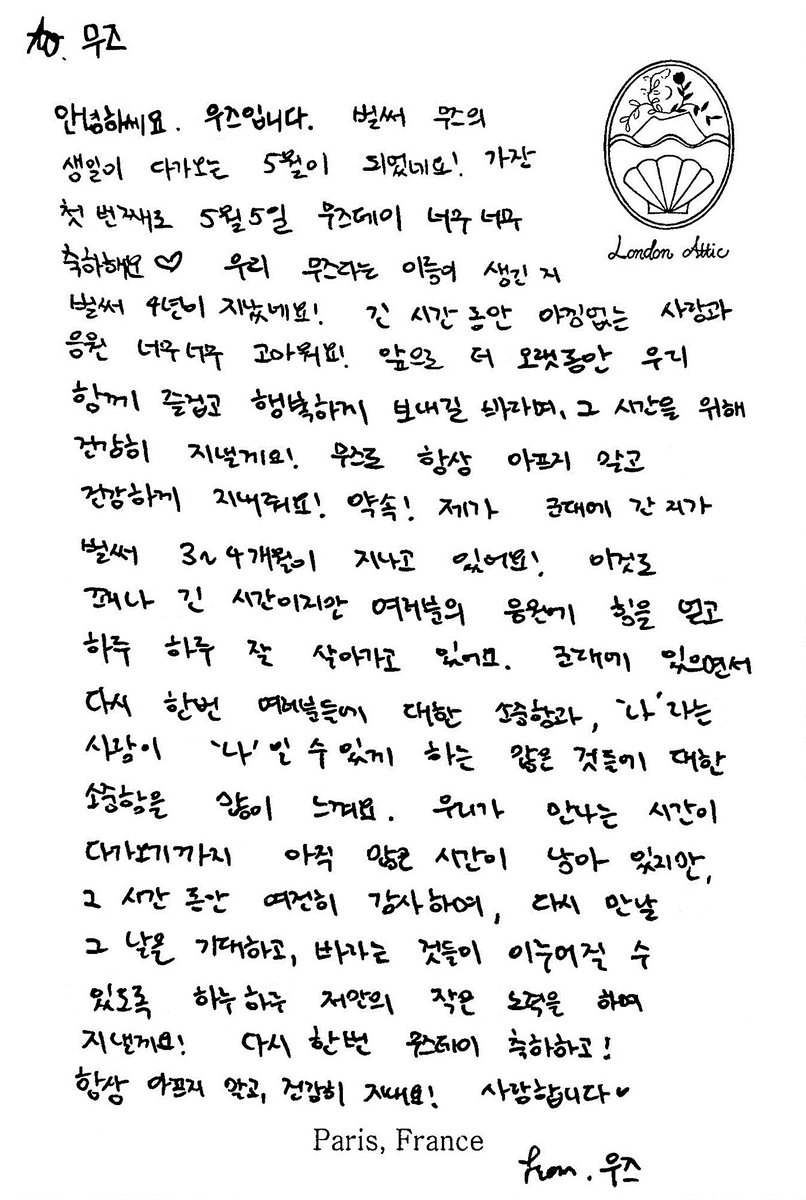 to. 무즈
안녕하세요. 우즈입니다. 벌써 무즈의
생일이 다가오는 5월이 되었네요! 가장
첫 번째로 5월5일 무즈데이 너무 너무
축하해요 ♡ 우리 무즈라는 이름이 생긴 지
벌써 4년이 지났네요! 긴 시간 동안 아낌없는 사랑과
응원 너무너무 고마워요! 앞으로 더 오랫동안 우리
함께 즐겁고 행복하게 보내길 바라며, 그 시간을 위해
건강히 지낼게요! 무즈도 항상 아프지 않고
건강하게 지내줘요! 약속! 제가 군대에 간 지가
벌써 3~4개월이 지나고 있어요! 이것도
꽤나 긴 시간이지만 여러분의 응원에 힘을 얻고
하루 하루 잘 살아가고 있어요. 군대에 있으면서
다시 한번 여러분들에 대한 소중함과, '나'라는
사람이 '나'일 수 있게 하는 많은 것들에 대한
소중함을 많이 느껴요. 우리가 만나는 시간이
다가오기까지 아직 많은 시간이 남아 있지만,
그 시간 동안 여전히 감사하며, 다시 만날
그 날을 기대하고, 바라는 것들이 이루어질 수
있도록 하루하루 저만의 작은 노력을 하며
지낼게요! 다시 한번 무즈데이 축하하고!
항상 아프지 않고, 건강히 지내요! 사랑합니다♥
Paris, France
from. 우즈
London Attic